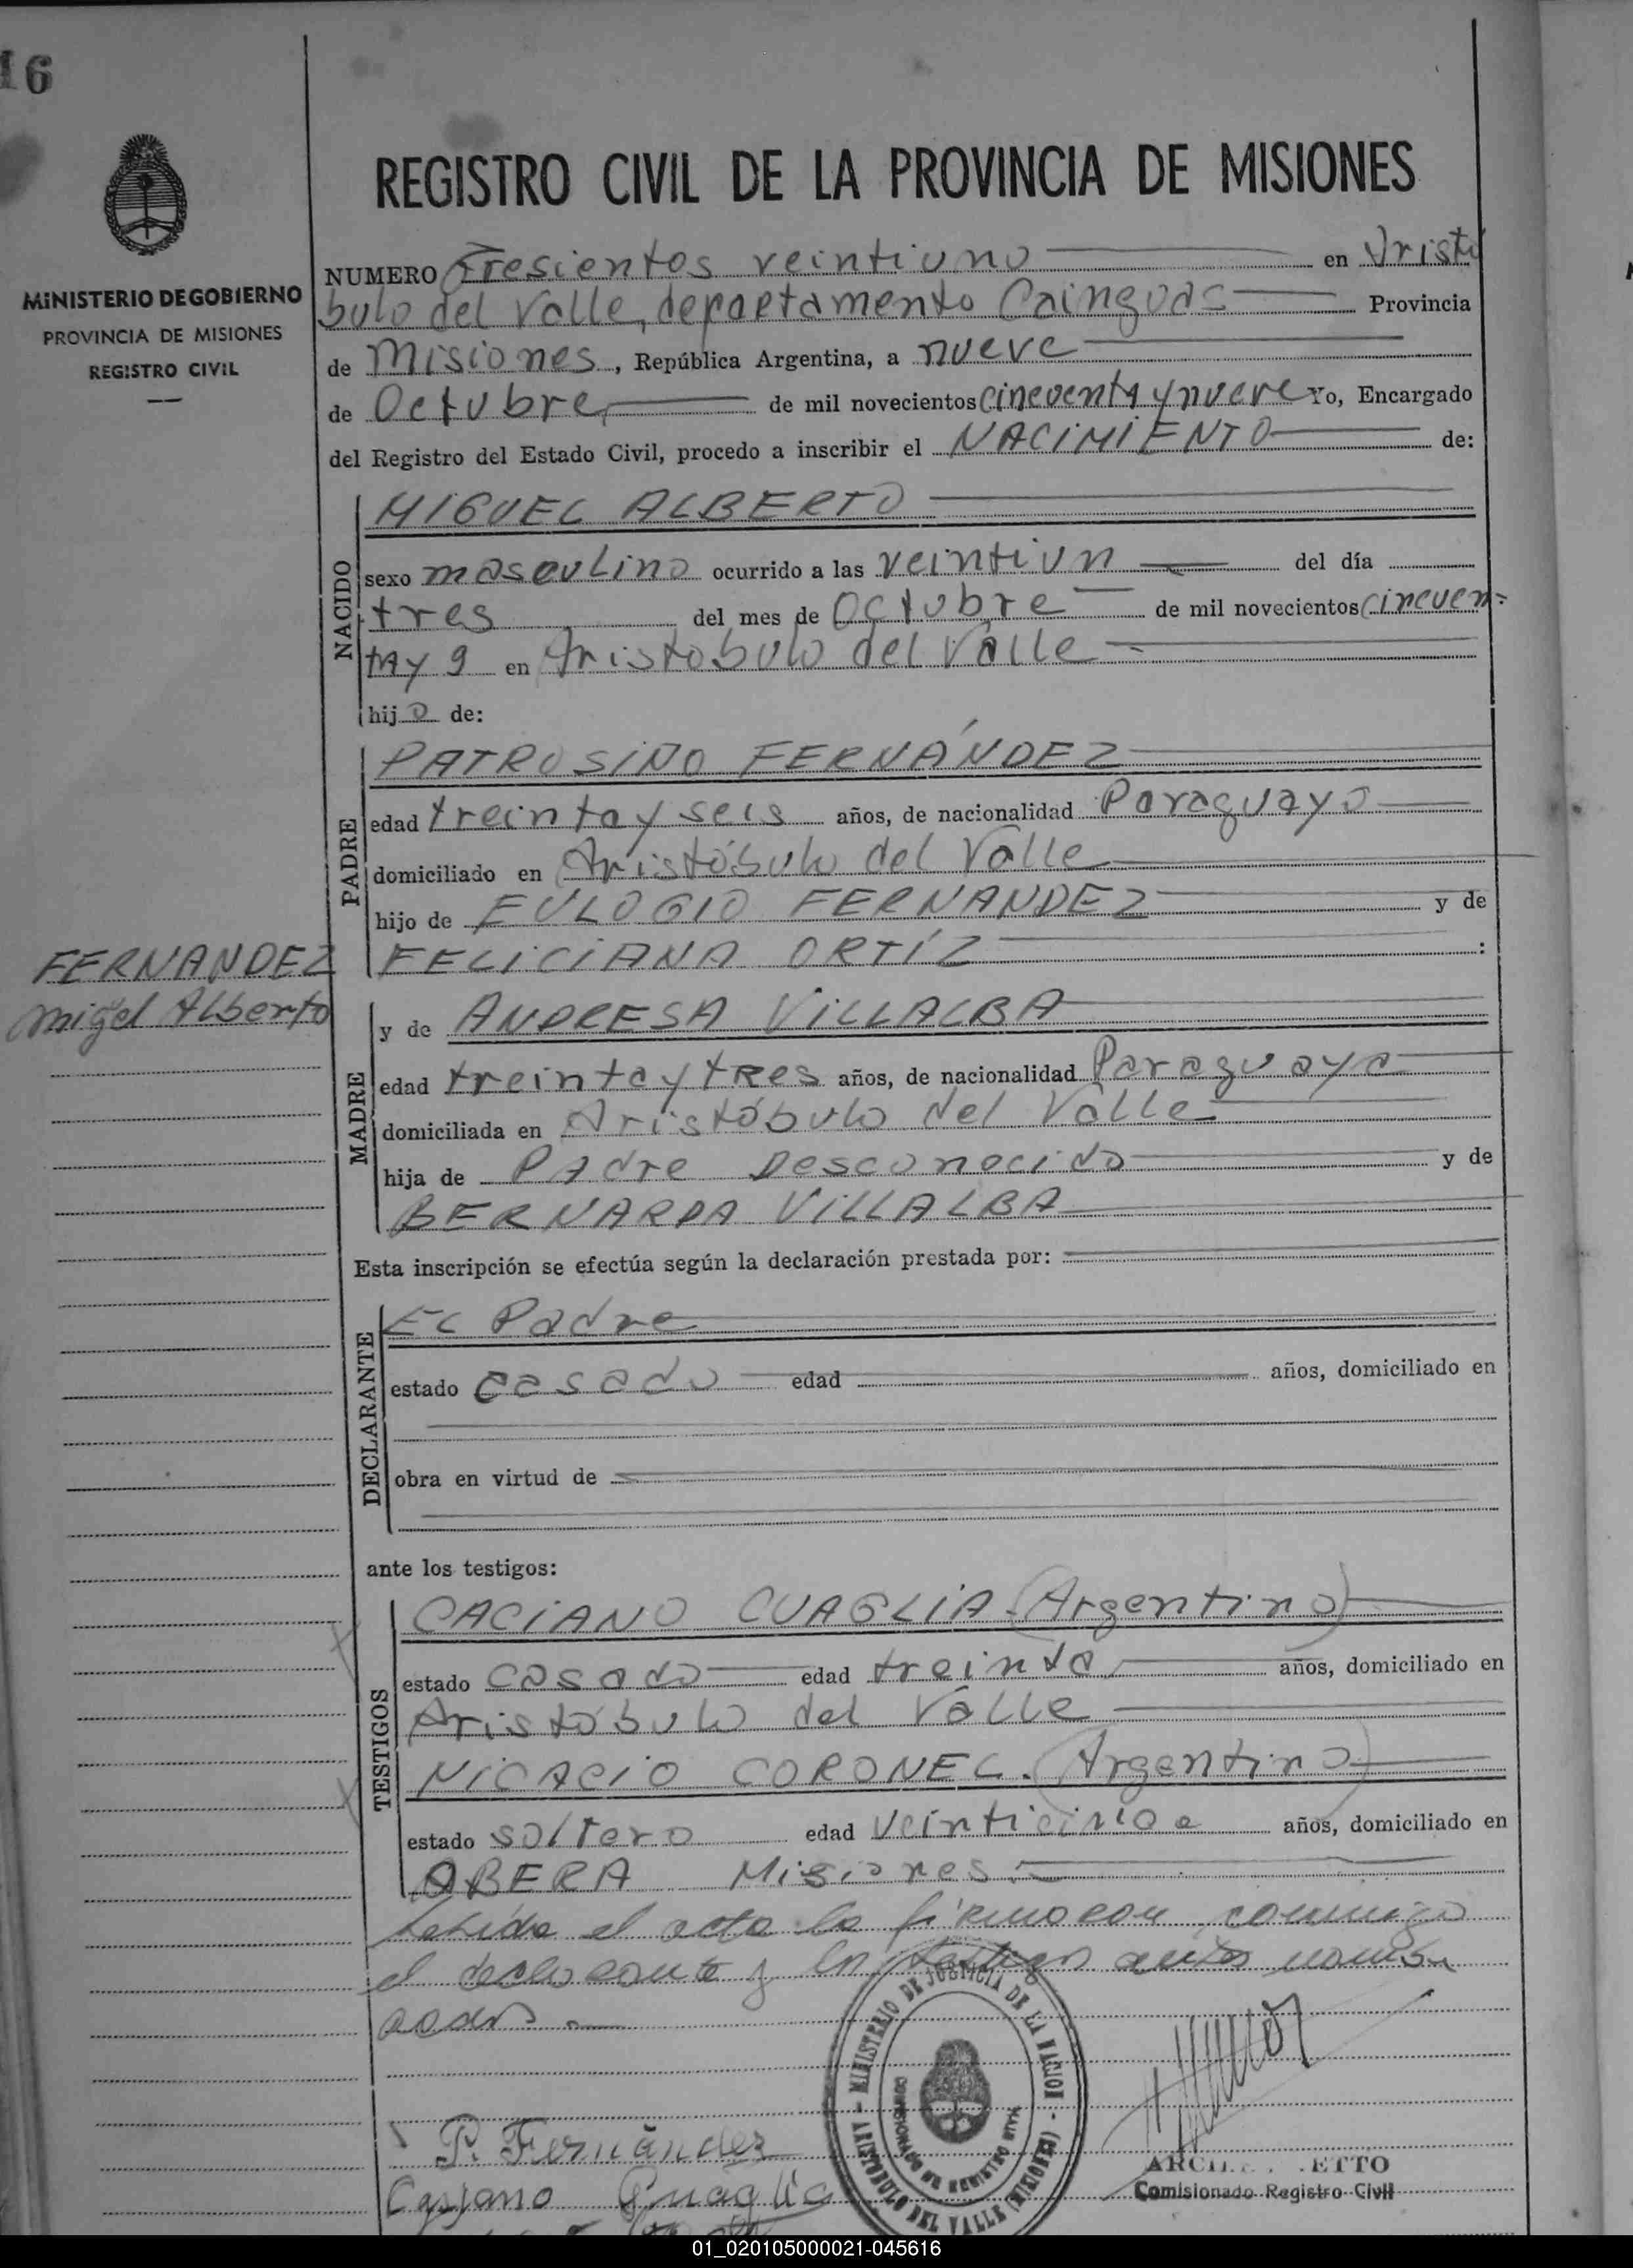 16
MINISTERIO DE GOBIERNO
PROVINCIA DE MISIONES
REGISTRO CIVIL
REGISTRO CIVIL DE LA PROVINCIA DE MISIONES
NUMERO Tresientos veintiuno en Aristó
bulo del Valle, departamento Cainguas Provincia
de Misiones, República Argentina, a nueve
de Octubre, de mil novecientos cincuenta y nueve Yo, Encargado
del Registro del Estado Civil, procedo a inscribir el NACIMIENTO de:
NACIDO
MIGUEL ALBERTO
sexo masculino ocurrido a las veintiun del día
tres del mes de Octubre de mil novecientos cincuen=
ta y 9 en Aristobulo del Valle
hijo de:
PADRE
PATROSINO FERNÁNDEZ
edad treinta y seis años, de nacionalidad Paraguayo
domiciliado en Aristóbulo del Valle
hijo de EULOGIO FERNANDEZ y de
FELICIANA ORTÍZ :
FERNANDEZ
Migel Alberto
MADRE
y de ANDRESA VILLALBA
edad treinta y tRes años, de nacionalidad Paraguaya
domiciliada en Aristóbulo del Valle
hija de Padre Desconocido y de
BERNARDA VILLALBA
Esta inscripción se efectúa según la declaración prestada por:
DECLARANTE
EL Padre
estado casado edad años, domiciliado en
obra en virtud de
ante los testigos:
TESTIGOS
CACIANO CUAGLIA (Argentino)
estado casado edad treinta años, domiciliado en
Aristóbulo del Valle
NICACIO CORONEL. (Argentino)
estado soltero edad veinticinco años, domiciliado en
OBERA Misiones.
Leída el acta la firmaron conmigo
el declarante y los testigos antes nombra
ados.
MINISTERIO DE JUSTICIA DE LA NACION - ARISTOBULO DEL VALLE (MISIONES) -
COMISIONADO DE REGISTRO CIVIL
P. Fernández
Casiano Quaglia
ETTO
Comisionado Registro Civil
01_020105000021-045616